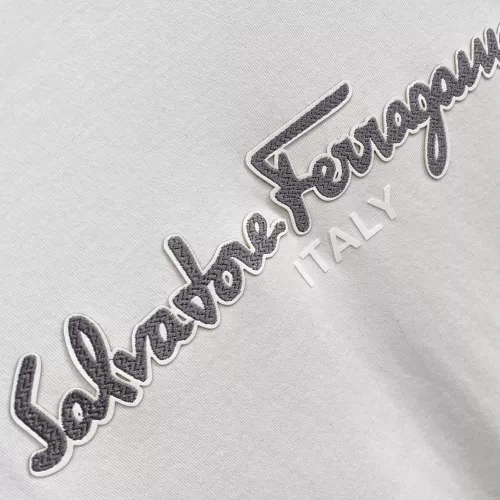 Salvatore Ferragamo
ITALY